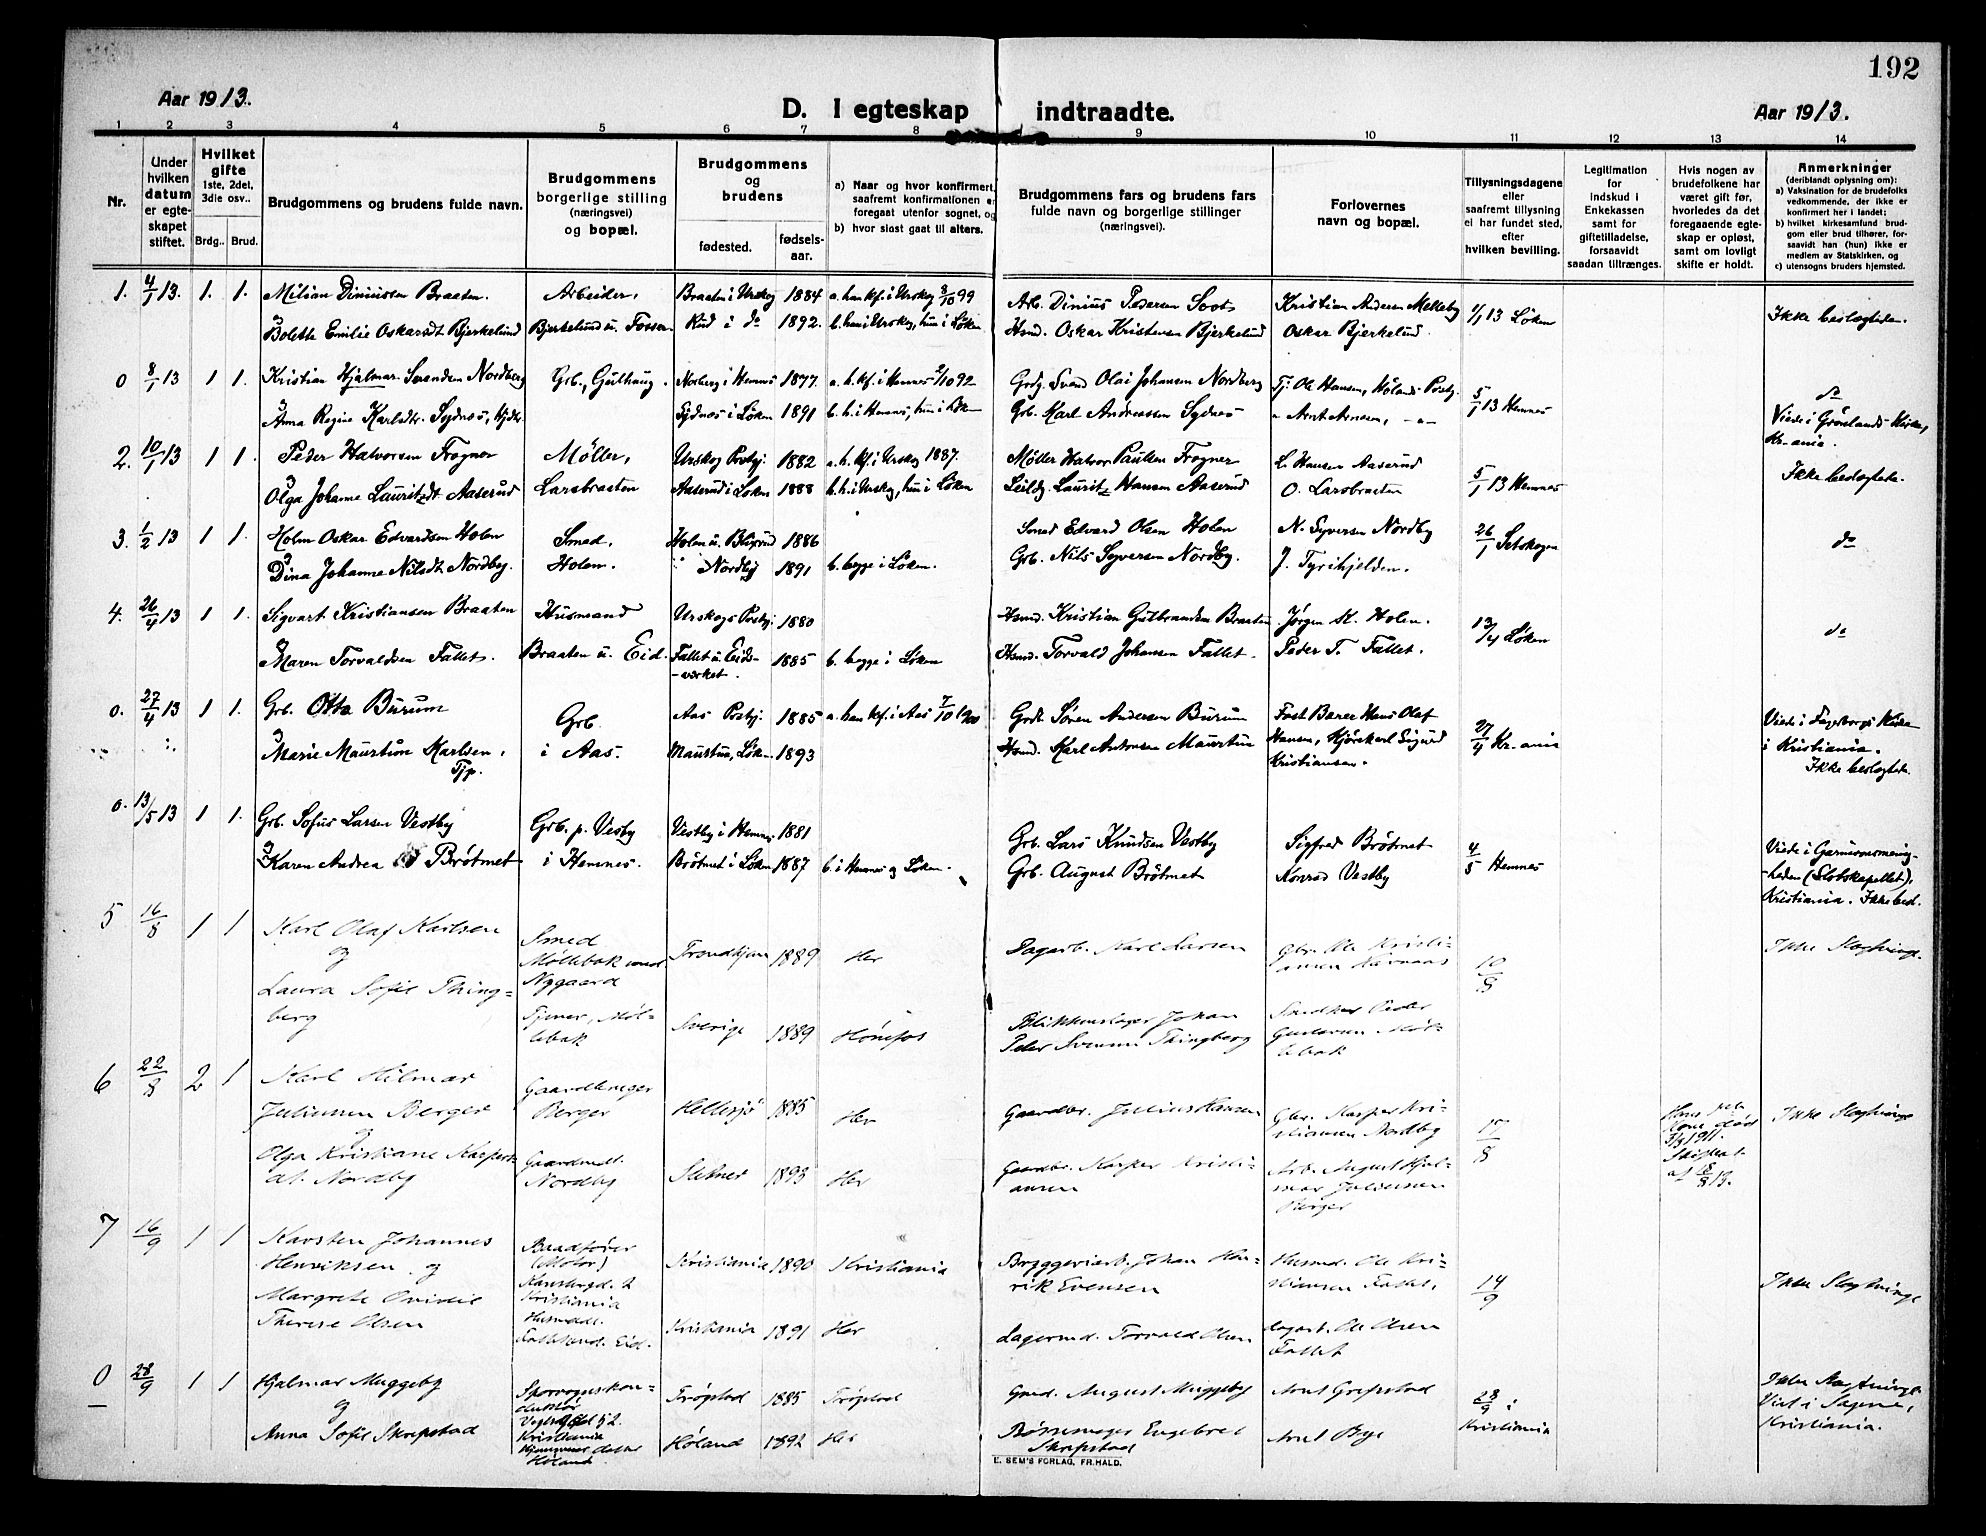 192
Aar 1913.
D. I egteskap indtraadte.
Aar 1913.
1 2 3 4 5 6 7 8 9 10 11 12 13 14
Nr.
Under hvilken datum er egte-skapet stiftet.
Hvilket gifte
1ste, 2det, 3die osv..
Brdg.. Brud.
Brudgommens og brudens fulde navn.
Brudgommens borgerlige stilling (næringsvei) og bopæl.
Brudgommens og brudens
fødested.
fødsels-aar.
a) Naar og hvor konfirmert, saafremt konfirmationen er foregaat utenfor sognet, og
b) hvor sidst gaat til alters.
Brudgommens fars og brudens fars fulde navn og borgerlige stillinger (næringsvei).
Forlovernes navn og bopæl.
Tillysningsdagene eller saafremt tillysning ei har fundet sted, efter hvilken bevilling.
Legitimation for indskud i Enkekassen samt for giftetilladelse, forsaavidt saadan tiltrænges.
Hvis nogen av brudefolkene har været gift før, hvorledes da det foregaaende egte-skap er opløst, samt om lovligt skifte er holdt.
Anmerkninger
(deriblandt oplysning om):
a) Vaksination for de brudefolks vedkommende, der ikke er konfirmert her i landet;
b) hvilket kirkesamfund brud-gom eller brud tilhører, for-saavidt han (hun) ikke er medlem av Statskirken, og
c) utensogns bruders hjemsted.
1. 4/1 13. 1. 1. Milian Diniussen Braaten. Arbeider, Braaten i Urskog 1884 a. han kf. i Urskog 8/10 99 Arb. Dinius Pedersen Soot Kristian Andersen Melleby 1/1 13 Løken Ikke beslegtede.
Bolette Emilie Oskarsdt Bjerkelund Bjerkelund u. Fosser. Rud i do 1892. b. han i Urskog, hun i Løken Hsmd. Oskar Kristensen Bjerkelund Oskar Bjerkelund.
0 8/1 13 1 1. Kristian Hjalmar Svendsen Nordberg Grb., Gulhaug. Norberg i Hemnes 1877. a. h. kf. i Hemnes 2/10 92 Grdg. Svend Olai Johansen Nordberg Tj. Ole Hansen, Hølands Prestgj. 5/1 13 Hemnes do
Anna Regine Karlsdtr. Sydnes, Gjdtr. Sydnes i Løken 1891 b. h. i Hemnes, hun i Løken Grb. Karl Andreassen Sydnes " Arnt Arnesen, -"- Viede i Grønlands Kirke, Kr-ania.
2. 10/1 13 1 1. Peder Halvorsen Frogner Møller, Urskog Prestgj. 1882 a. h. kf. i Urskog 1887. Møller Halvor Paulsen Frogner L. Hansen Aaserud 5/1 13 Hemnes Ikke beslegtede.
Olga Johanne Lauritsdt Aaserud Larsbraaten Aaserud i Løken 1888 b. h. i Urskog, hun i Løken Leildg. Laurits Hansen Aaserud O. Larsbraaten
3. 1/2 13 1 1. Holm Oskar Edvardsen Holen Smed, Holen u. Blixrud 1886 Smed Edvard Olsen Holen N. Syversen Nordby 26/1 Setskogen do
Dina Johanne Nilsdt. Nordby. Holen. Nordby 1891 b. begge i Løken. Grb. Nils Syversen Nordby. J. Tyrihjelden.
4. 26/4 13 1 1. Sigvart Kristiansen Braaten Husmand Urskogs Prestgj. 1880 Hsmd. Kristian Gulbrandsen Braaten Jørgen K. Holen. 13/4 Løken do
Maren Torvaldsen Fallet. Braaten u. Eid. Fallet u. Eids-værket. 1885 b. begge i Løken Hsmd. Torvald Johansen Fallet. Peder T. Fallet.
0. 27/4 13 1 1. Grb. Otto Burum Grb. Aas Prestgj. 1885 a. han kf. i Aas 7/10 1900 Grdb. Søren Andersen Burum Hans Olaf 27/4 Kr-ania Viede i Fagerborgs Kirke
Marie Maurtun Karlsen, Tjp. i Aas. Maurtun, Løken 1893 Hsmd. Karl Antonsen Maurtun Hansen, Sigurd Kristiansen. i Kristiania. Ikke beslegtede.
0. 13/5 13 1 1. Grb. Sofus Larsen Vestby Grb. p. Vestby Vestby i Hemnes 1881 Grb. Lars Knudsen Vestby Sigfred Brøtmet 4/5 Hemnes Viede i Garnisonsmenig-heden (Slotskapellet), Kristiania. Ikke besl.
Karen Andrea Brøtmet i Hemnes. Brøtmet i Løken 1887 b. i Hemnes og Løken. Grb. August Brøtmet Konrad Vestby
5 16/8 1 1 Karl Olaf Karlsen Smed Møllebak Nygaard Trondhjem 1889 Her Dagarb. Karl Larsen Gbr. Ole Kristi-ansen 10/8 Ikke Slegtninge.
og
Laura Sofie Thing-berg Tjener, Møl-lebak Sverige 1889 Hønefos Blikkenslager Johan Peter Svensen Thingberg Peder Gustavsen Møl-lebak
6 22/8 2 1 Karl Hilmar Juliussen Berger Gaardbruger Berger Hellesjø 1885 Her Gaardbr. Julius Hansen Gbr. Kasper Kri-stiansen Nordby 17/8 Hans første Kone død 1911. Skifteat. af 18/8 13. Ikke Slegtninge
og
Olga Kristiane Kaspers-dt. Nordby Gaardmdt. Nordby Slekner 1893 Her Gaardbr. Kasper Kristi-ansen Arb. August Hjal-mar Juliussen Berger
7 16/9 1 1 Karsten Johannes Henriksen og Baadfører (Motor) Kristiania Kristiania 1890 Kristiania Bryggeriarb. Johan Hen-rik Evensen Husmd. Ole Kri-stiansen Fallet, 14/9 Ikke Slegtninge
Margrete Ovidie Therese Olsen Eid. Kristiania 1891 Her Lagermd. Torvald Olsen Dagarb. Ole Olsen Fallet
0 28/9 1 1 Hjalmar Muggeby Sporvognskon-duktør Kristiania Trøgstad 1885 Trøgstad Gmd. August Muggeby Arnt Grefstad 28/9 i Kristiania Ikke Slegtninge Viet i Sagene, Kristiania.
og
Anna Sofie Skrepstad Høland. Høland 1892 Her Børsemager Engebret Skrepstad Arnt Bye
E. SEM'S FORLAG, FR.HALD.